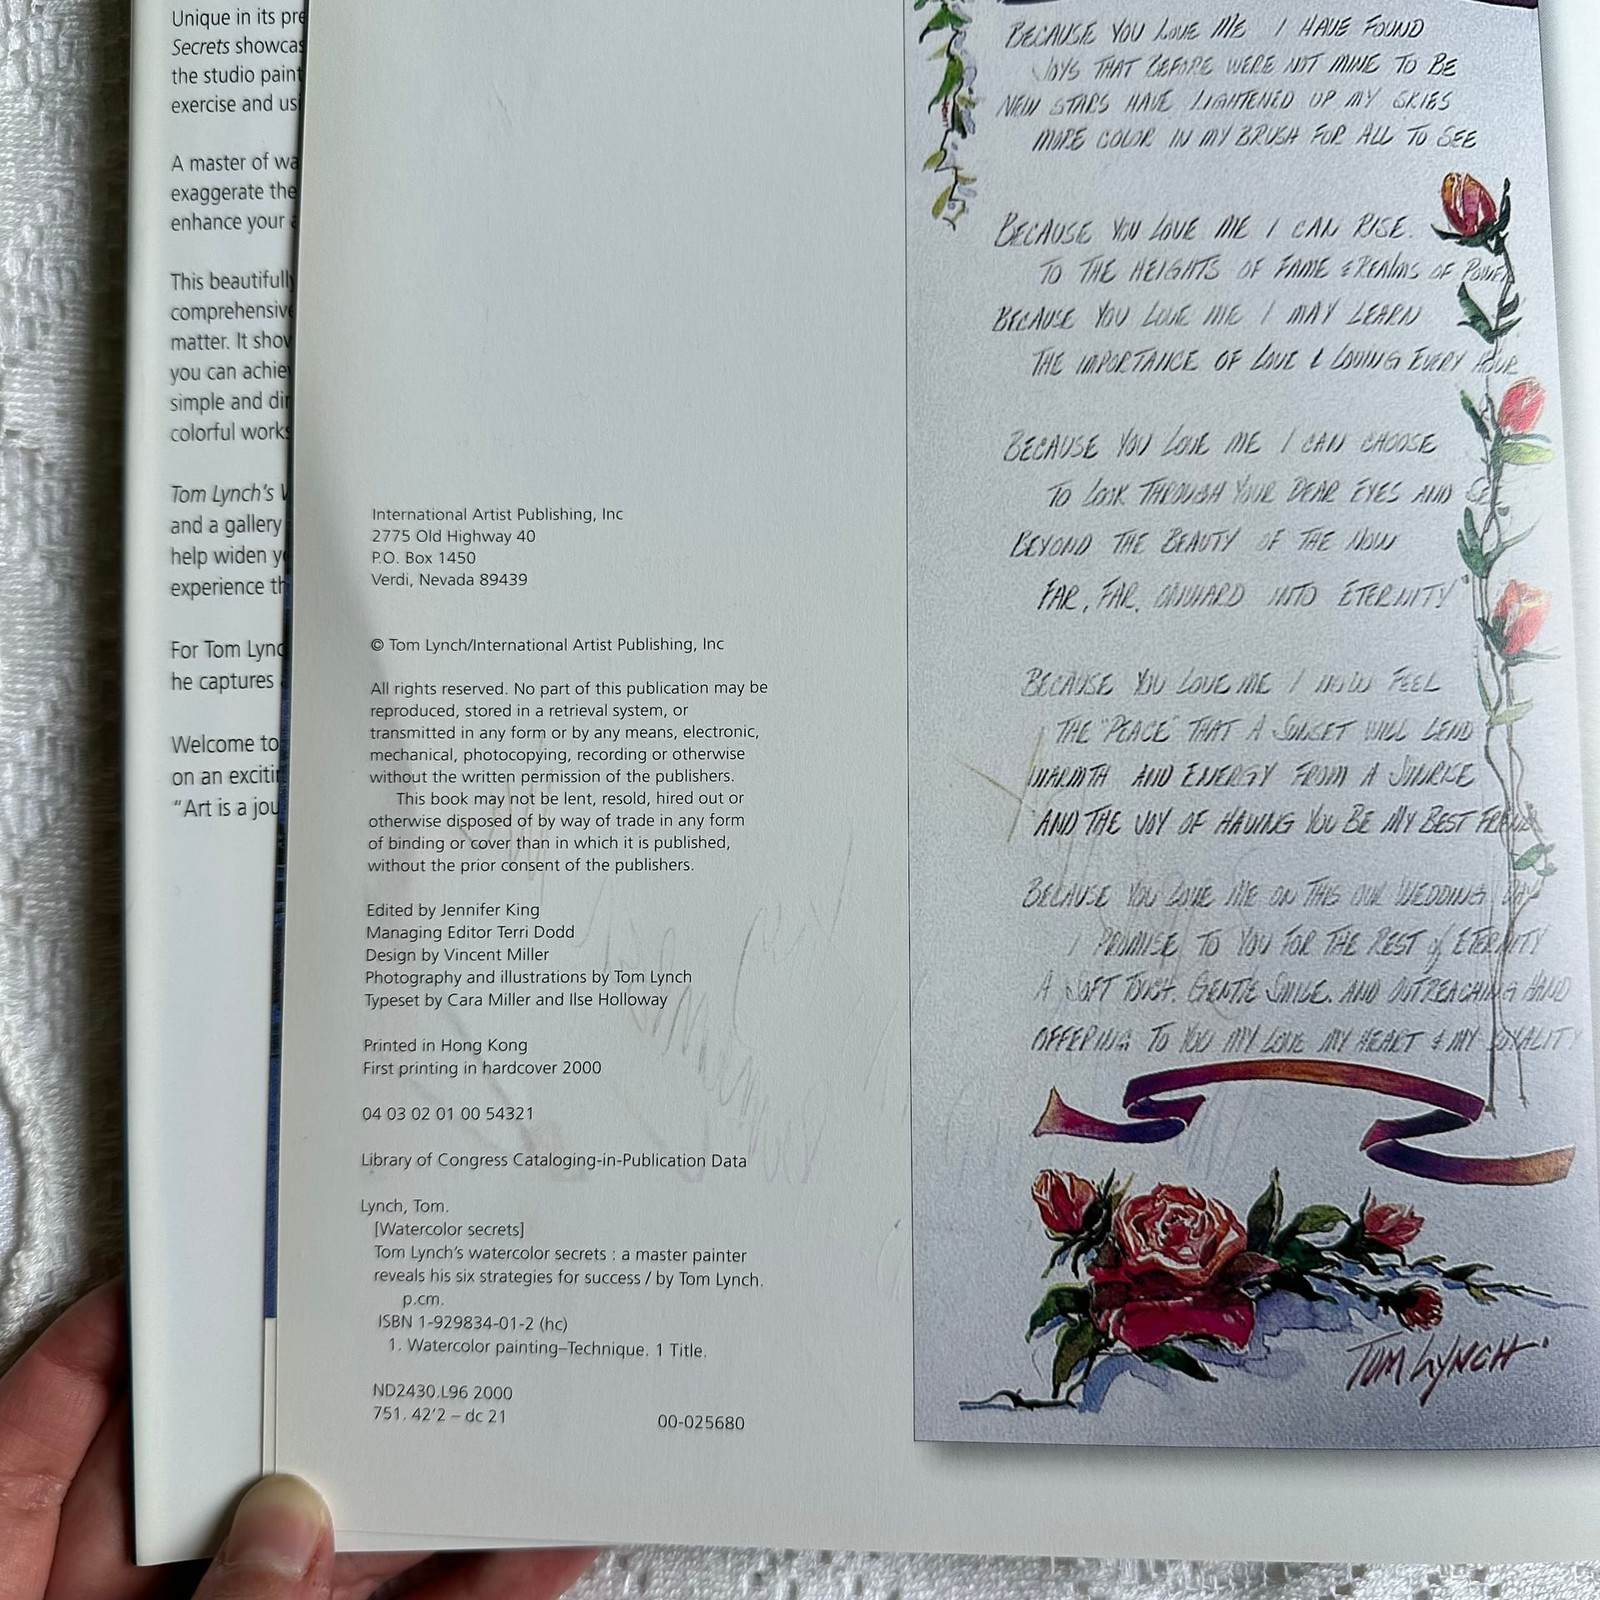 Unique in its
Secrets
the studio
exercise and
A master of
exaggerate the
enhance your
This
comprehensive
matter. It
you can
simple and
colorful
Tom Lynch's
and a gallery
help widen
experience
For Tom
he captures
Welcome to
on an
"Art is a
International Artist Publishing, Inc
2775 Old Highway 40
P.O. Box 1450
Verdi, Nevada 89439
© Tom Lynch/International Artist Publishing, Inc
All rights reserved. No part of this publication may be
reproduced, stored in a retrieval system, or
transmitted in any form or by any means, electronic,
mechanical, photocopying, recording or otherwise
without the written permission of the publishers.
This book may not be lent, resold, hired out or
otherwise disposed of by way of trade in any form
of binding or cover than in which it is published,
without the prior consent of the publishers.
Edited by Jennifer King
Managing Editor Terri Dodd
Design by Vincent Miller
Photography and illustrations by Tom Lynch
Typeset by Cara Miller and Ilse Holloway
Printed in Hong Kong
First printing in hardcover 2000
04 03 02 01 00 54321
Library of Congress Cataloging-in-Publication Data
Lynch, Tom.
[Watercolor secrets]
Tom Lynch's watercolor secrets : a master painter
reveals his six strategies for success / by Tom Lynch.
p.cm.
ISBN 1-929834-01-2 (hc)
1. Watercolor painting–Technique. 1 Title.
ND2430.L96 2000
751. 42'2 – dc 21
00-025680
BECAUSE YOU LOVE ME I HAVE FOUND
JOYS THAT BEFORE WERE NOT MINE TO BE
NEW STARS HAVE LIGHTENED UP MY SKIES
MORE COLOR IN MY BRUSH FOR ALL TO SEE
BECAUSE YOU LOVE ME I CAN RISE.
TO THE HEIGHTS OF FAME & REALMS OF POWER
BECAUSE YOU LOVE ME I MAY LEARN
THE IMPORTANCE OF LOVE & LOVING EVERY HOUR
BECAUSE YOU LOVE ME I CAN CHOOSE
TO LOOK THROUGH YOUR DEAR EYES AND SEE
BEYOND THE BEAUTY OF THE NOW
FAR, FAR, ONWARD INTO ETERNITY
BECAUSE YOU LOVE ME I NOW FEEL
THE "PEACE" THAT A SUNSET WILL LEND
WARMTH AND ENERGY FROM A SUNRISE
AND THE JOY OF HAVING YOU BE MY BEST FRIEND
BECAUSE YOU LOVE ME ON THIS OUR WEDDING DAY
I PROMISE TO YOU FOR THE REST of ETERNITY
A SOFT TOUCH, GENTLE SMILE, AND OUTREACHING HAND
OFFERING TO YOU MY LOVE MY HEART & MY LOYALITY
TOM LYNCH